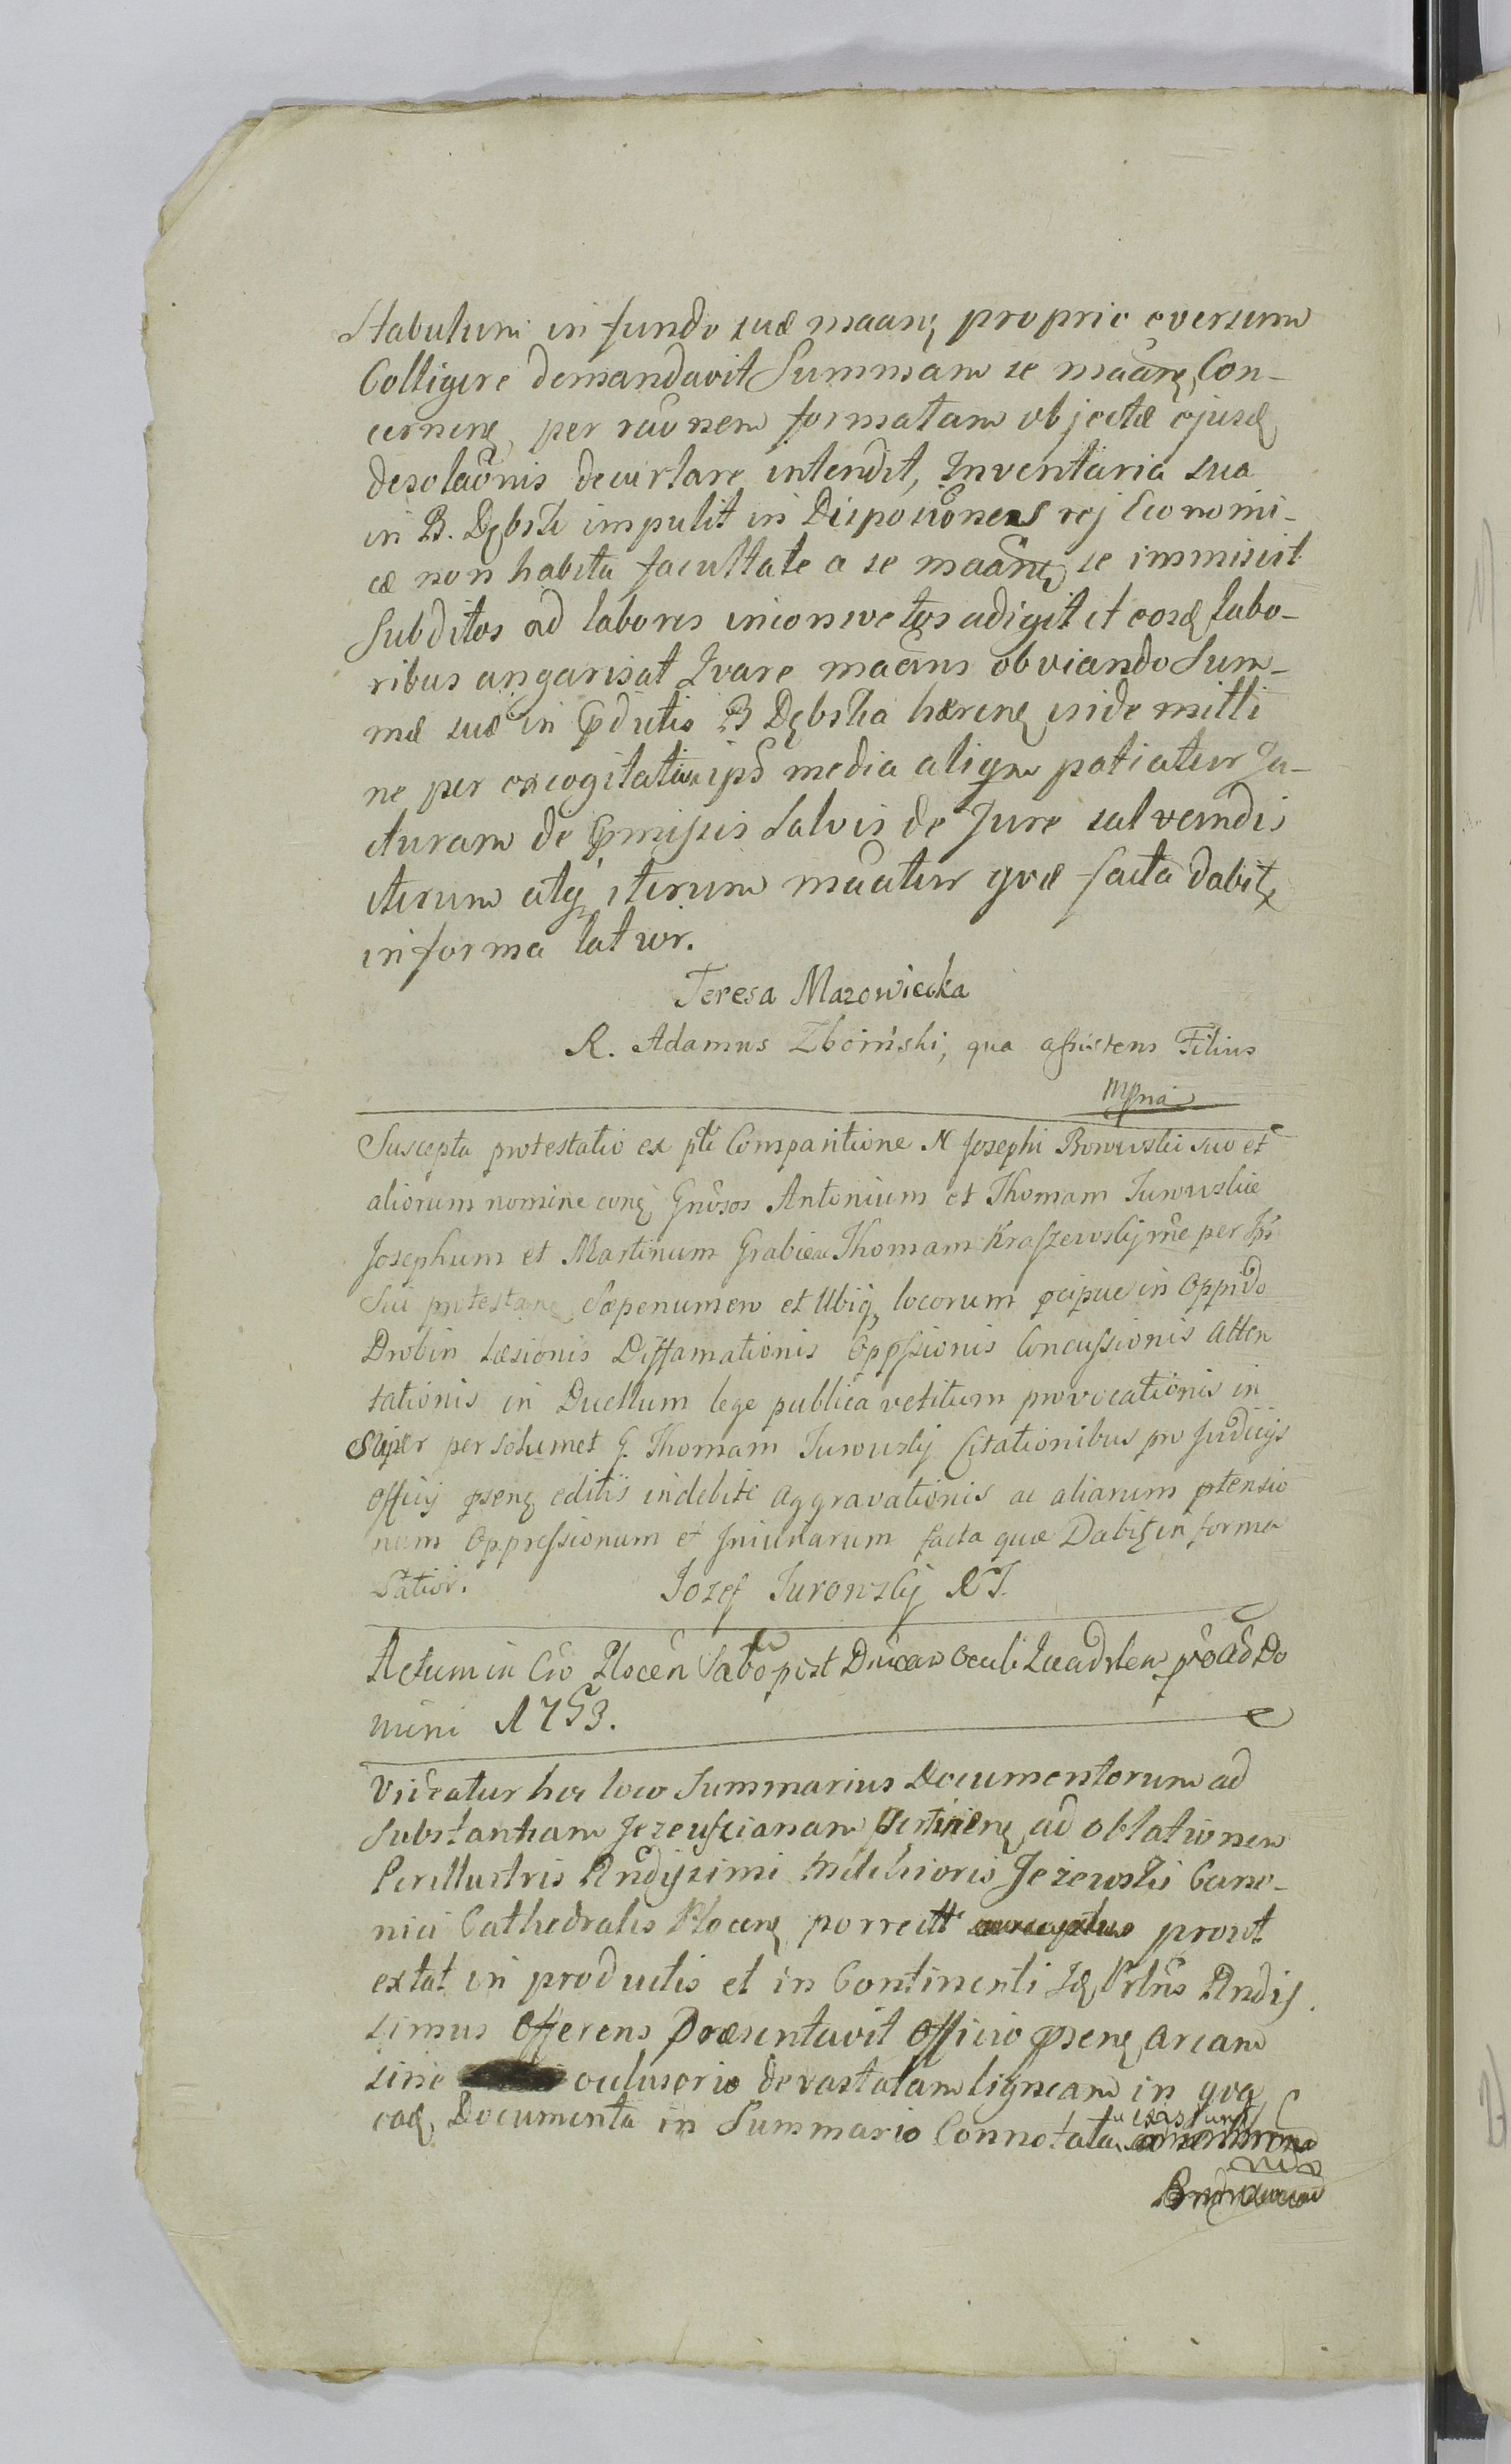 Stabulum in fundo suæ maanę proprio eversum
Colligere demandavit Summam se maanę Con-
cernenę per raõnem formatam objectæ ejusdę
desolaõnis decurtare intendit, Inventaria sua
in B. Dębsk impulit in Disposiõnem rej Economi-
cæ non habita facultate a se maanę se immiscit
Subditos ad labores inconsvetos adigit et eosdę labo-
ribus angarisat Qvare maans obviando Sum-
mæ suæ in prdictis B Dębska hærenę inde milli
ne per excogitata ips media aliqm patiatur Ja-
cturam de prmissis Salvis de Jure salvandis
iterum atqę iterum maatur qvæ facta dabitę
in forma latior.
Teresa Mazowiecka
R. Adamus Zboiński, qua assistens Filius
mpria
Suscepta protestatio ex pti Comparitione N Josephi
aliorum nomine conę Gnosos Antonium et Thomam Jurowskie
Josephum et Martinum Grabie ac Thomam Kraszewskij rne per Ips
Sui protestanę Sæpenumero et Ubiqę locorum pcipue in Oppido
Drobin Læsionis Diffamationis Oppssionis Concussionis Atten
tationis in Duellum lege publica vetitum provocationis in
Super per solumet G. Thomam Jurowskij Citationibus pro Judicijs
Officij psenę editis indebite Aggravationis ac aliarum ptensio
num Oppressionum et Injuriarum facta quæ Dabitę in forma
Latior. Jozef Jurowskij N J.
Actum in Cro Plocen Sabbo post Dnicam Oculi Quadrlem pro Ao Do
mini 1753.
Videatur hoc loco Summarius Documentorum ad
Substantiam Jezewscianam pertinenę ad oblationem
Perillustris Rndissimi Melchioris Jezewski Cano-
nici Cathedralis Plocenę porrectt prout
extat in productis et in Continenti Idę Prlris Rndis
simus Offerens Præsentavit Officio psenę arcam
sine oclusorio devastatam ligneam in qva
eadę Documenta in Summario Connotata